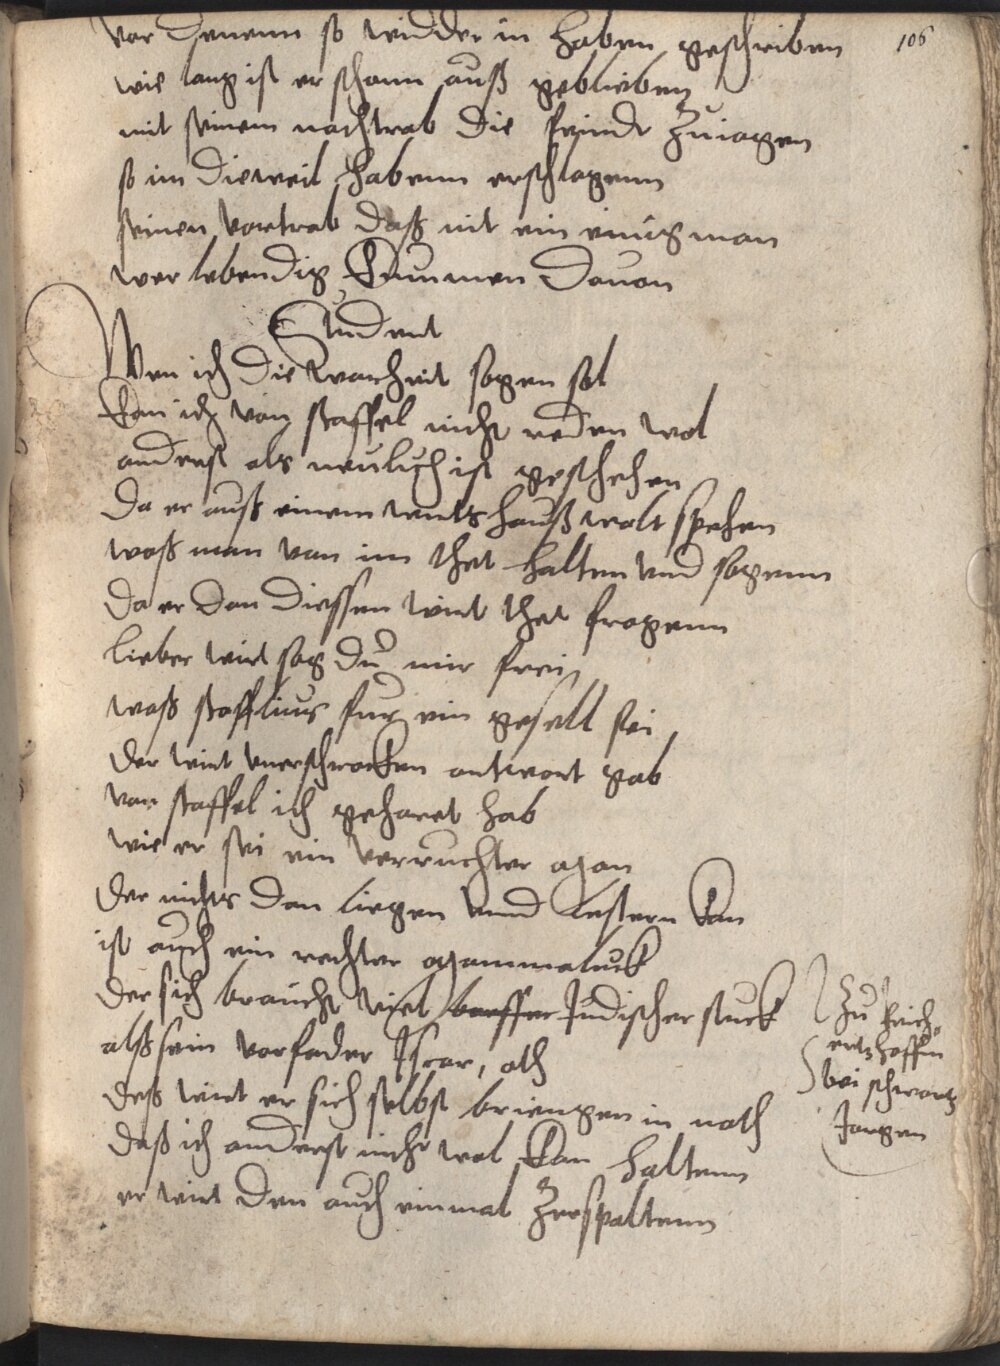 106
vor denenn so widder in haben geschriben
wie lang ist er schonn auß gebliebenn
mit seinem nachtrab die feinde zuiagen
so im dieweil habenn erschlagenn
seinen vortrab daß nit ein einig man
wer lebendig kummen dauon
Student
Wen ich die warheit sagen sol
kan ich von staffel nicht reden wol
anderst als neulich ist geschehen
da er auß einem wirtshauß wolt spehen
waß man von im thet halten vnd sagenn
da er dan diessen wirt thet fragenn
lieber wirt sag du mir frei
waß stafflius fur ein gesell sei
der wirt vnerschrocken antwort gab
von staffel ich gehoret hab
wie er sei ein verruchter man
der nichts dan liegen vnnd lestern kan
ist auch ein rechter mammaluck
der sich braucht viel Judischer stuck
alß sein vorfader Iscar, oth
deß wirt er sich selbst briengen in noth
daß ich anderst nicht wol kan haltenn
er wirt den auch einmal zerspaltenn
zu
hoffen
bei schwartz